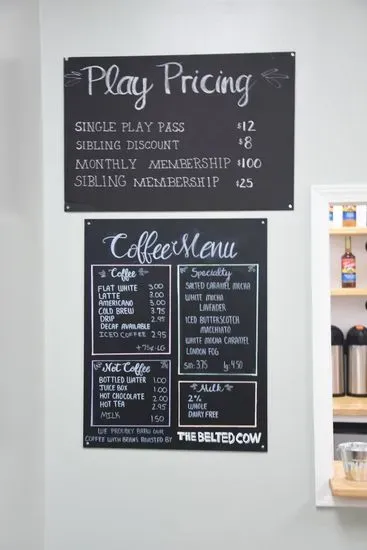 Play Pricing
SINGLE PLAY PASS $12
SIBLING DISCOUNT $8
MONTHLY MEMBERSHIP $100
SIBLING MEMBERSHIP $25
Coffee Menu
Coffee
FLAT WHITE 3.00
LATTE 3.00
AMERICANO 3.00
COLD BREW 3.75
DRIP 2.95
DECAF AVAILABLE
ICED COFFEE 2.95
+75¢ LG
Not Coffee
BOTTLED WATER 1.00
JUICE BOX 1.00
HOT CHOCOLATE 2.00
HOT TEA 2.95
MILK 1.50
Specialty
SALTED CARAMEL MOCHA
WHITE MOCHA
LAVENDER
ICED BUTTERSCOTCH
MACCHIATO
WHITE MOCHA CARAMEL
LONDON FOG
sm: 3.75 lg: 4.50
Milk
2%
WHOLE
DAIRY FREE
WE PROUDLY BREW OUR
COFFEE WITH BEANS ROASTED BY THE BELTED COW